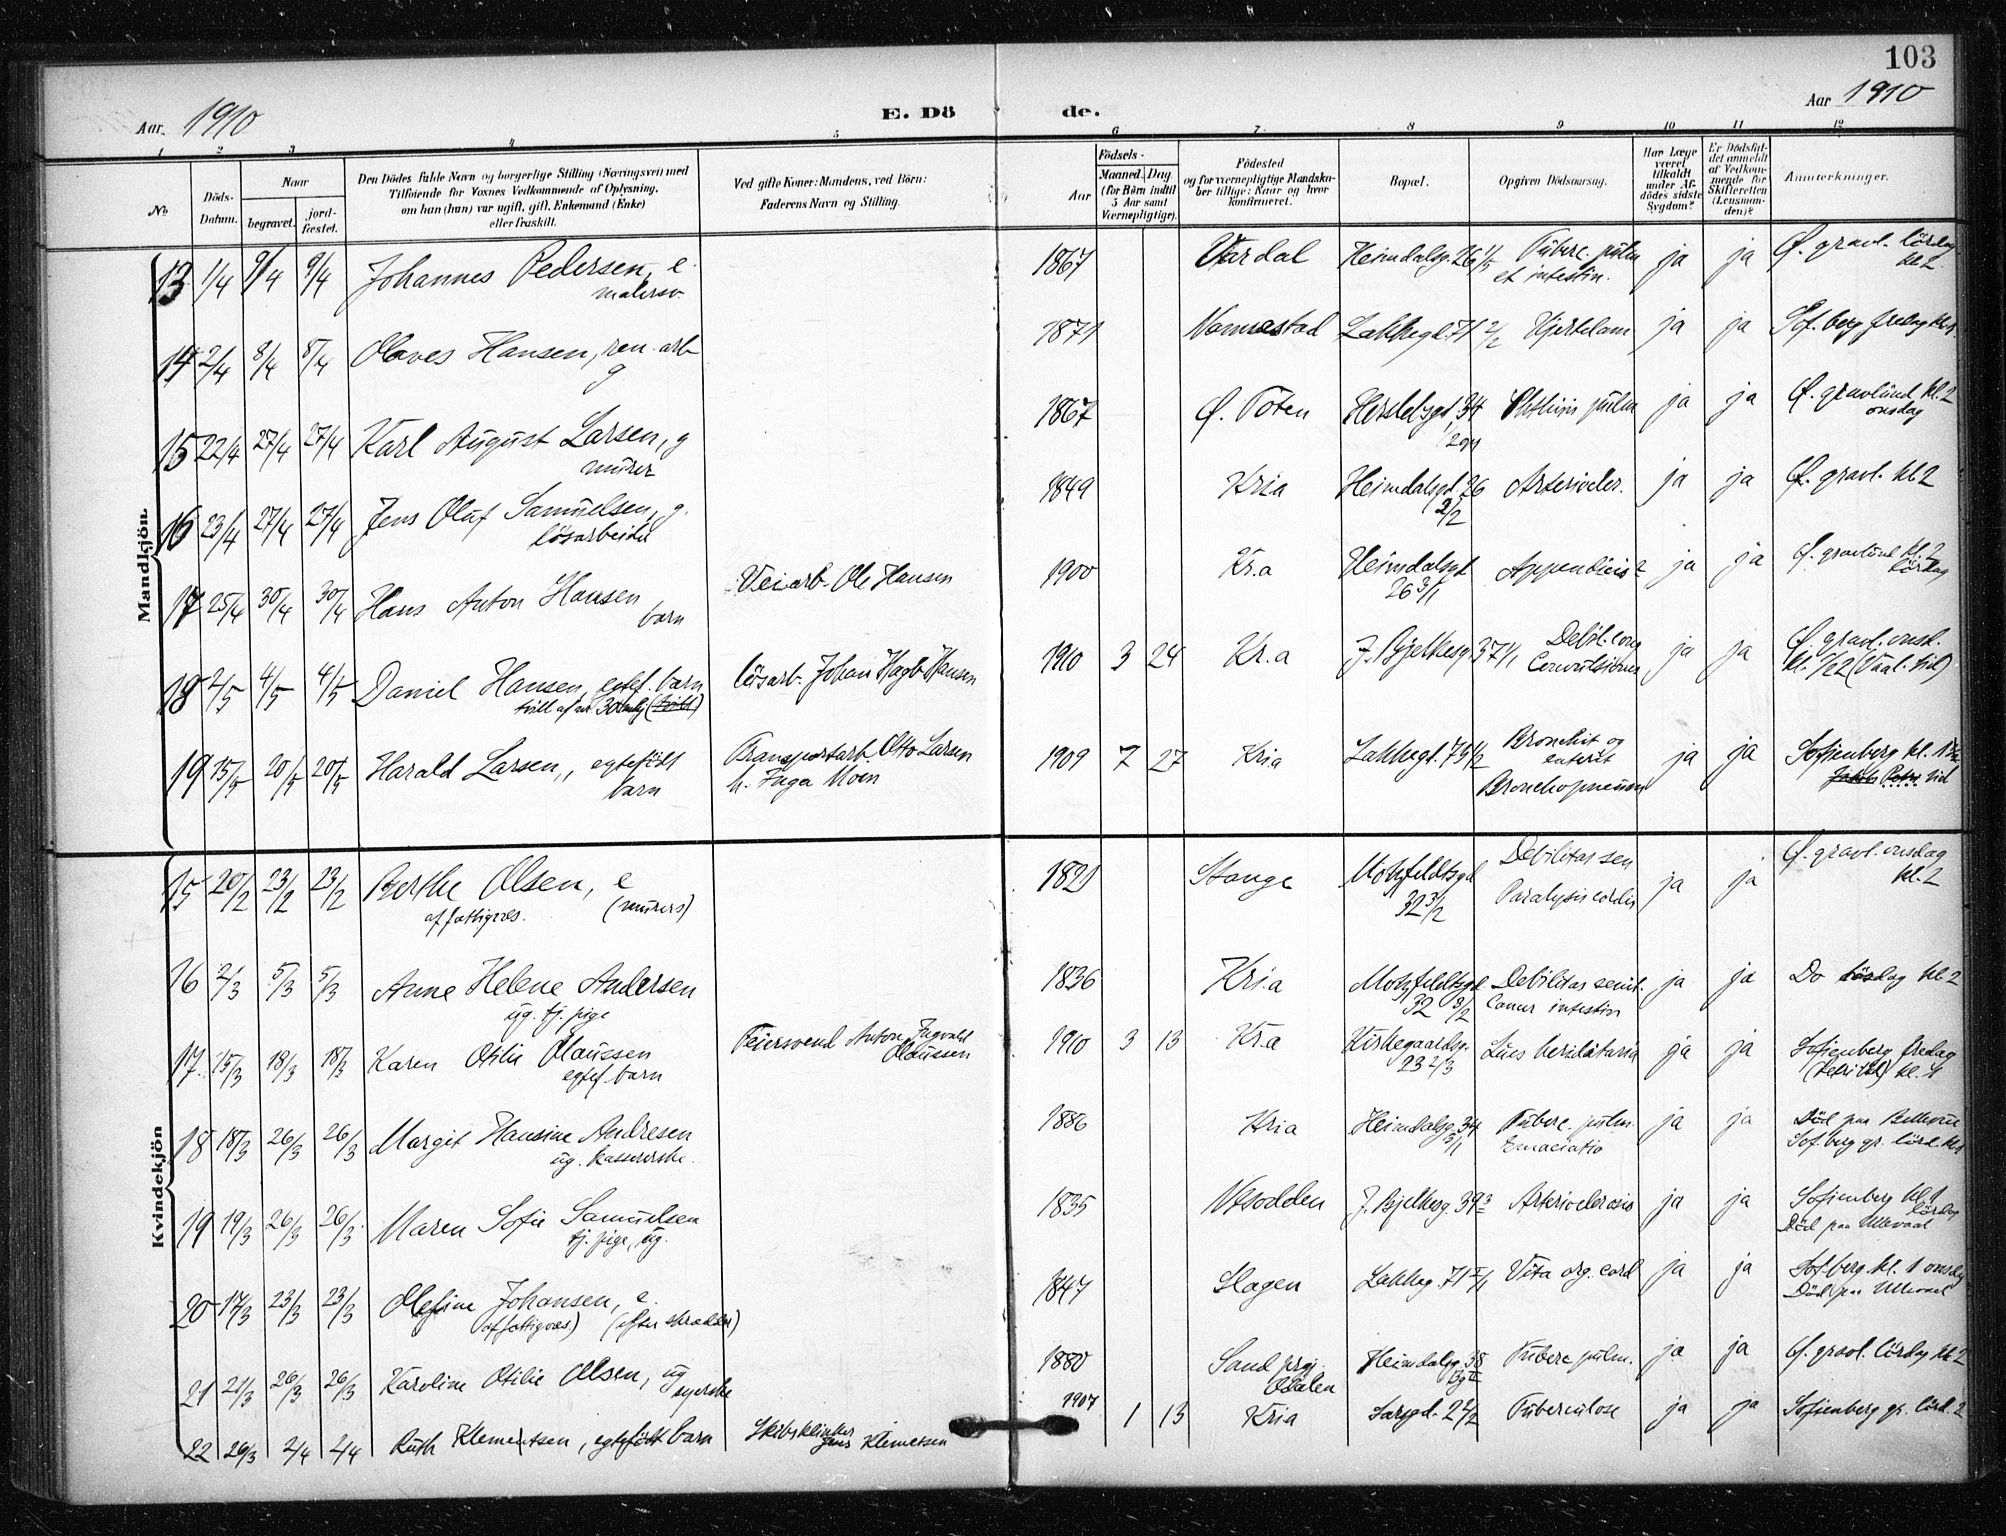 103
Aar 1910
E. Dö de.
Aar 1910
1 2 3 4 5 6 7 8 9 10 11 12
No
Döds-Datum.
Naar
begravet.
jord-fæstet.
Den Dödes fulde Navn og borgerlige Stilling (Næringsvei) med
Tilföiende for Voxnes Vedkommende af Oplysning,
om han (hun) var ugift, gift, Enkemand (Enke)
eller fraskilt.
Ved gifte Koner: Mandens, ved Börn:
Faderens Navn og Stilling.
Födsels-
Aar
Maaned. Dag.
(for Börn indtil
5 Aar samt
Værnepligtige).
Födested
og for værnepligtige Mandskaber tillige: Naar og hvor
konfirmeret.
Bopæl.
Opgiven Dödsaarsag.
Har Læge været tilkaldt under Afdödes sidste Sygdom?
Er Dödsfaldet anmeldt af Vedkommende for Skifteretten (Lensmanden)?
Anmerkninger.
Mandkjön.
13 1/4 9/4 9/4 Johannes Pedersen, e. 1867 Vardal Heimdalsg. 26 1/5 Tuberc. pulm ja ja Ø. gravl. lördag
malersv. et intestin. kl 2
14 2/4 8/4 8/4 Olaves Hansen, ren. arb 1871 Nannestad Lakkegd. 71 2/2 Hjertelam ja ja Sof. berg fredag kl 1
g
15 22/4 27/4 27/4 Karl August Larsen, g 1867 Ø. Toten Herslebsgd. 34 Phthisis pulm ja ja Ø. gravlund kl. 2
murer onsdag
16 23/4 27/4 27/4 Jens Oluf Samuelsen, g. 1849 Kria Heimdalsgd 26 Arterioscler. ja ja Ø. gravl. kl 2
lösarbeider 2/2
17 25/4 30/4 30/4 Hans Anton Hansen Veiarb. Ole Hansen 1900 Kr.a Heimdalsgd Appendicit ja ja Ø. gravlund kl. 2
barn 26 3/1 lördag
18 2/5 4/5 4/5 Daniel Hansen, egtef. barn lösarb. Johan Hagb Hansen 1910 3 24 Kr.a J. Bjelkesg. 37 1/1 Debil. cong ja ja Ø. gravl. onsd.
Convulsiones kl. 1/2 2 (Vaal. tid)
19 15/5 20/5 20/5 Harald Larsen, egtefödt Transportarb. Otto Larsen 1909 7 27 Kria Lakkegt. 73 1/2 Bronchit og ja ja Sofienberg kl. 1 1/2
barn h. Inga Moen enterit
Bronchopneumoni
Kvindekjön
15 20/2 23/2 23/2 Berthe Olsen, e 1821 Stange Motzfeldtsgd Debilitas sen ja ja Ø. gravl. onsdag
af fattigvæs. (murers) 32 3/2 Paralysis cordis kl. 2
16 2/3 5/3 5/3 Anne Helene Andersen 1836 Kria Motzfeldtsgd Debilitas senil. ja ja Do lösdag kl 2
ug. tj. pige 32 3/2 Cancer intestin
17 15/3 18/3 18/3 Karen Otilie Olaussen Feiersvend Anton Ingvald Olaussen 1910 3 13 Kr.a Kirkegaardsg. Lues hereditaria ja ja Sofienberg fredag
egtef. barn 23 2/3 kl. 1
18 18/3 26/3 26/3 Margit Hansine Andresen 1886 Kria Heimdalsg. 34 Tuberc. pulm. ja ja Död paa Bellevue
ug. kassererske. 3/1 Emaciatio Sof. berg gr. lörd. kl 1
19 19/3 26/3 26/3 Maren Sofie Samuelsen 1835 Nesodden J. Bjelkesg. 39 Arteriosclerosis ja ja Sofienberg kl 1
tj. pige, ug. lördag
Död paa Ullevaal
20 17/3 23/3 23/3 Olefine Johansen, e. 1847 Slagen Lakkeg. 71 1/1 Vita org. cord ja ja Sof. berg. kl. 1 onsdag
af fattigvæs) (efter skrædder) Död paa Ullevaal
21 21/3 26/3 26/3 Karoline Otilie Olsen, ug 1880 Sand prgj. Heimdalsg. 38 Tuberc pulm. ja ja Ø. gravl. lördag kl 2
syerske Odalen
22 29/3 2/4 2/4 Ruth Klementsen, egtefödt barn Skibsklinker Jens Klemetsen 1907 1 13 Kria Sarsgd. 2 2/2 Tuberculose ja ja Sofienberg gr. lörd. 2